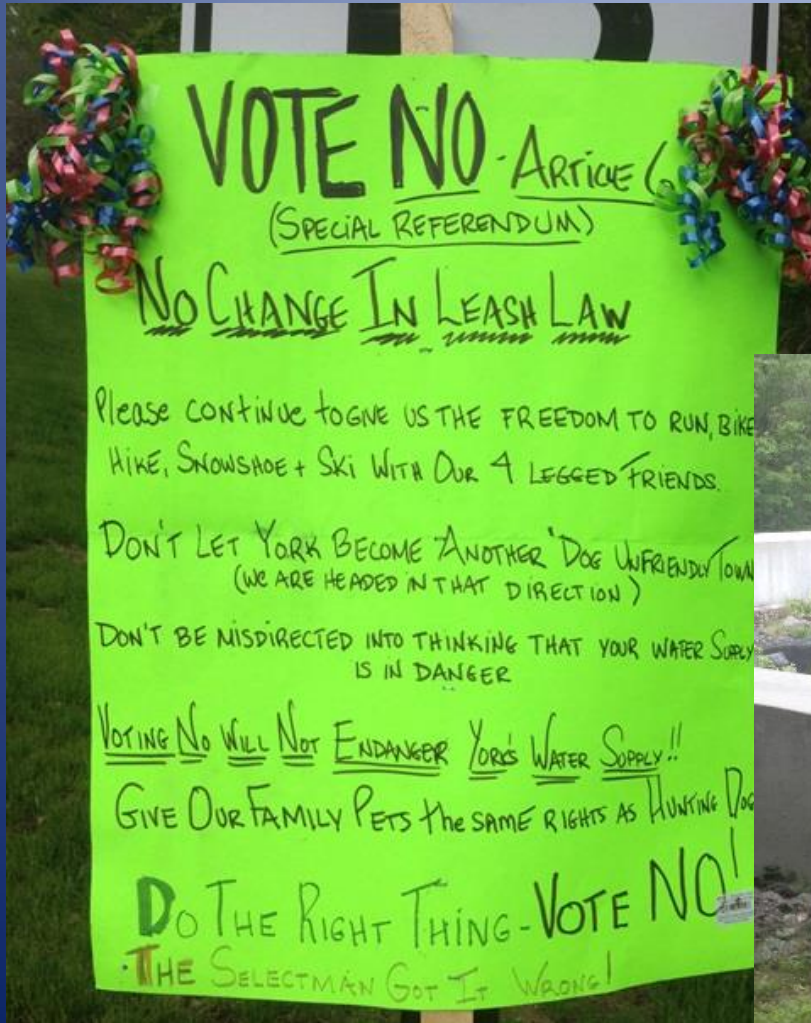 VOTE NO - ARTICLE 6
(SPECIAL REFERENDUM)
NO CHANGE IN LEASH LAW
Please CONTINUE to GIVE US THE FREEDOM TO RUN, BIKE
HIKE, SNOWSHOE + SKI WITH OUR 4 LEGGED FRIENDS.
DON'T LET YORK BECOME ANOTHER "DOG UNFRIENDLY TOWN
(WE ARE HEADED IN THAT DIRECTION)
DON'T BE MISDIRECTED INTO THINKING THAT YOUR WATER SUPPLY
IS IN DANGER
VOTING NO WILL NOT ENDANGER YORK'S WATER SUPPLY!!
GIVE OUR FAMILY PETS the SAME RIGHTS AS HUNTING DOG
DO THE RIGHT THING - VOTE NO!
THE SELECTMAN GOT IT WRONG!